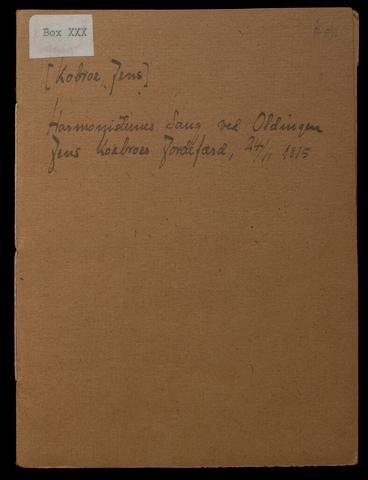 Box XXX
[Kobroe, Jens]
Harmonisternes Sang ved Oldingen
Jens Koebroes Jordefærd, 24/11 1815